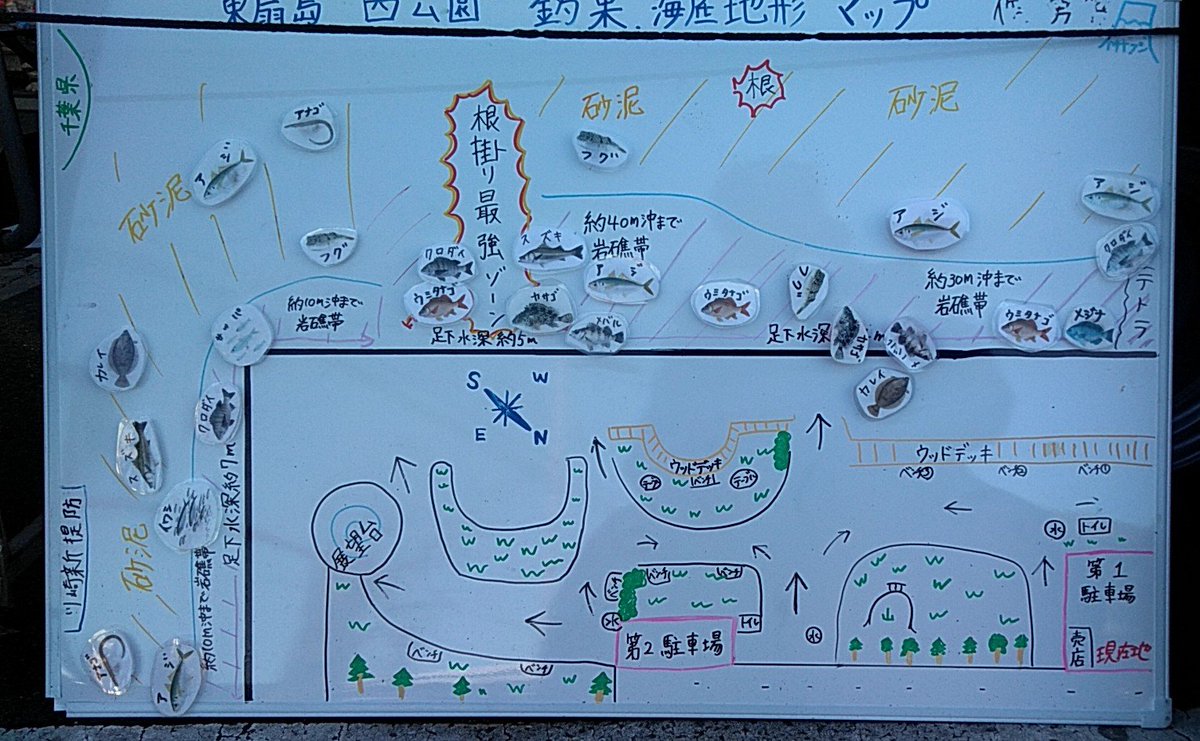 東扇島 西公園 釣果 海底地形 マップ
千葉県
砂泥
根
砂泥
アナゴ
アジ
根掛り最強ゾーン
フグ
砂泥
フグ
クロダイ
スズキ
約40m沖まで
岩礁帯
アジ
アジ
クロダイ
約10m沖まで
岩礁帯
ウミタナゴ
アジ
ウミタナゴ
約30m沖まで
岩礁帯
テトラ
メバル
ウミタナゴ
メジナ
足下水深 約5m
足下水深
カレイ
カレイ
クロダイ
S W
E N
スズキ
ウッドデッキ
ベンチ
ウッドデッキ
ベンチ③
ベンチ②
ベンチ①
イワシ
足下水深約7m
展望台
川崎新堤防
砂泥
約10m沖まで岩礁帯
水
トイレ
ベンチ
ベンチ
ベンチ
水
トイレ
水
第1
駐車場
売店
現在地
第2 駐車場
ベンチ
ベンチ
アナゴ
アジ